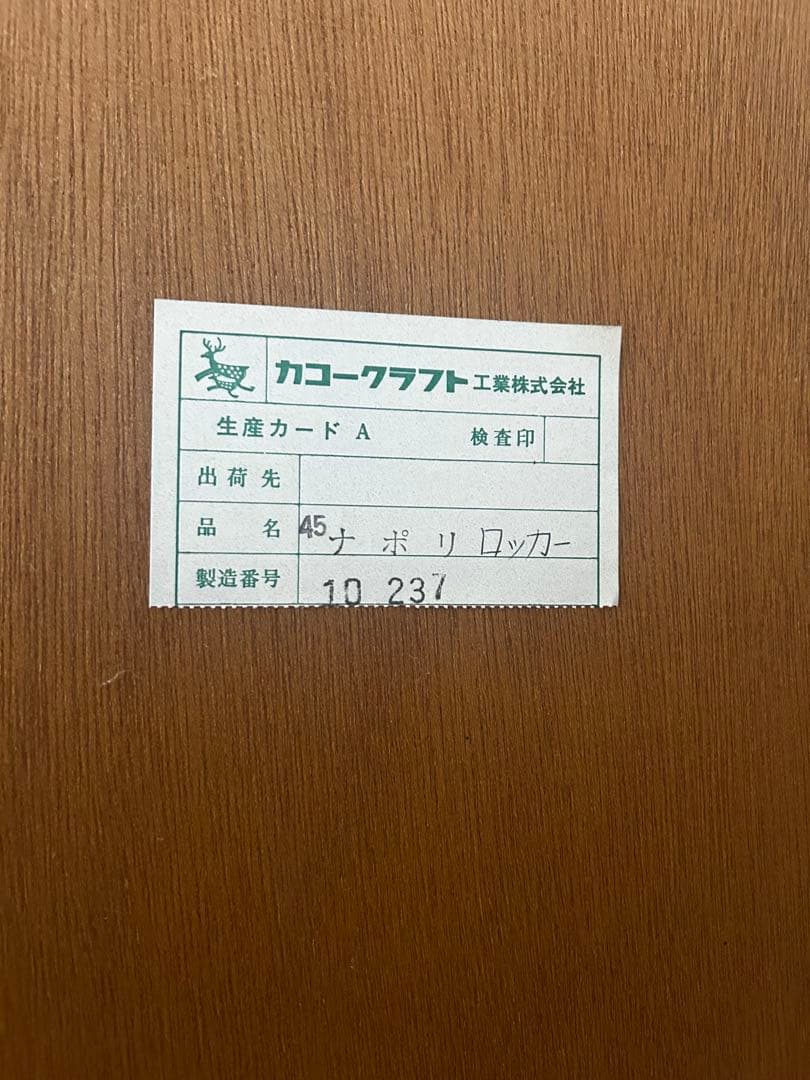 カコークラフト工業株式会社
生産カード A 検査印
出荷先
品名 45ナポリロッカー
製造番号 10 237